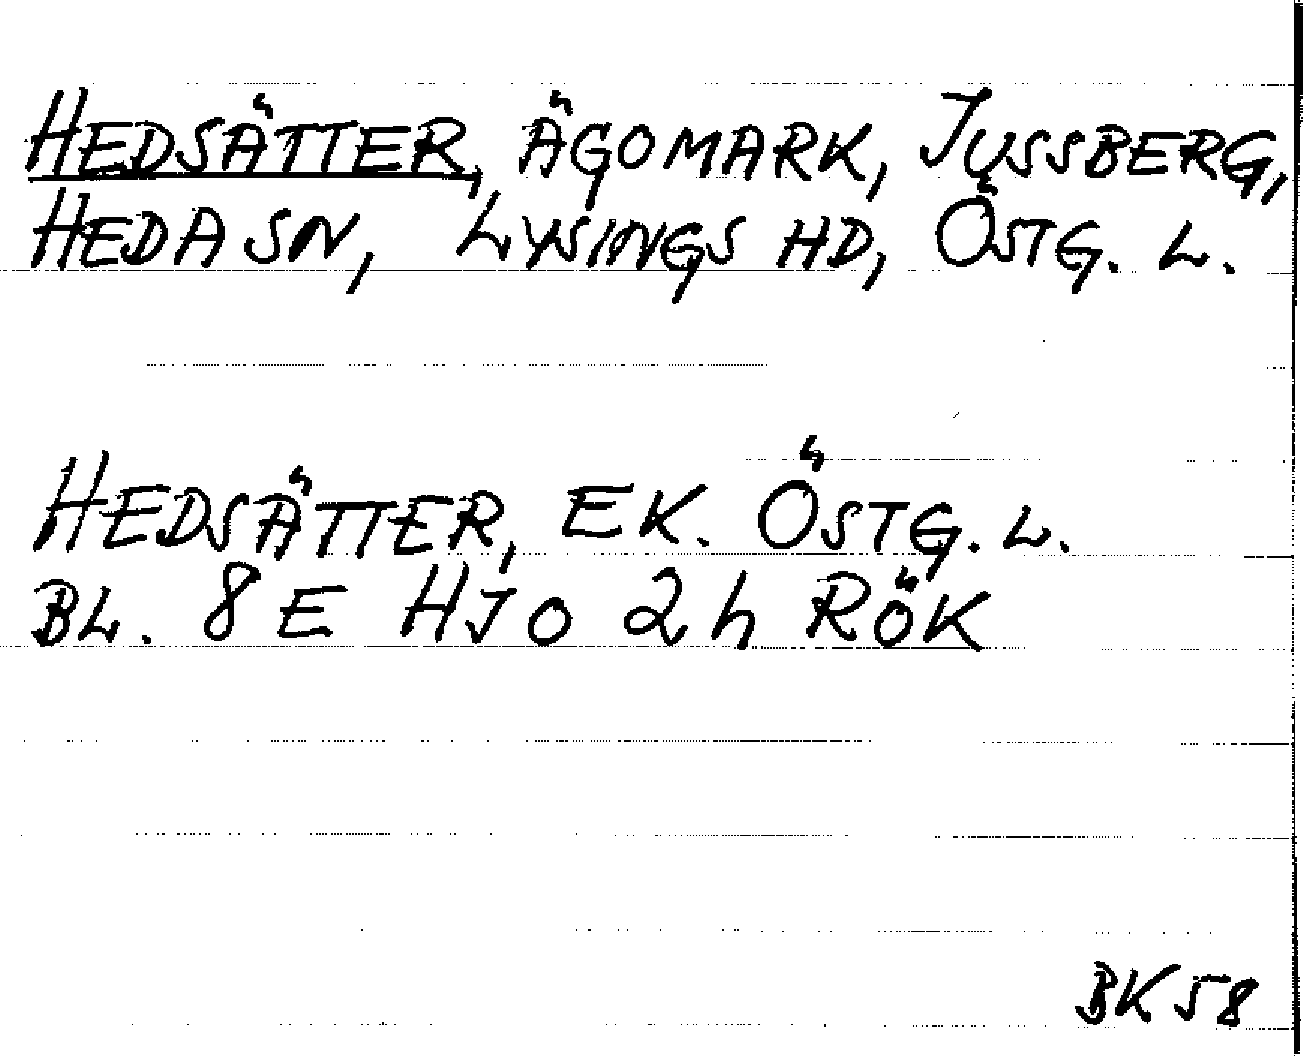 HEDSÄTTER, ÄGOMARK, JUSSBERG,
HEDA SN, LYSINGS HD, ÖSTG. L.
HEDSÄTTER, EK. ÖSTG. L.
BL. 8 E HJO 2 h RÖK
BK 58